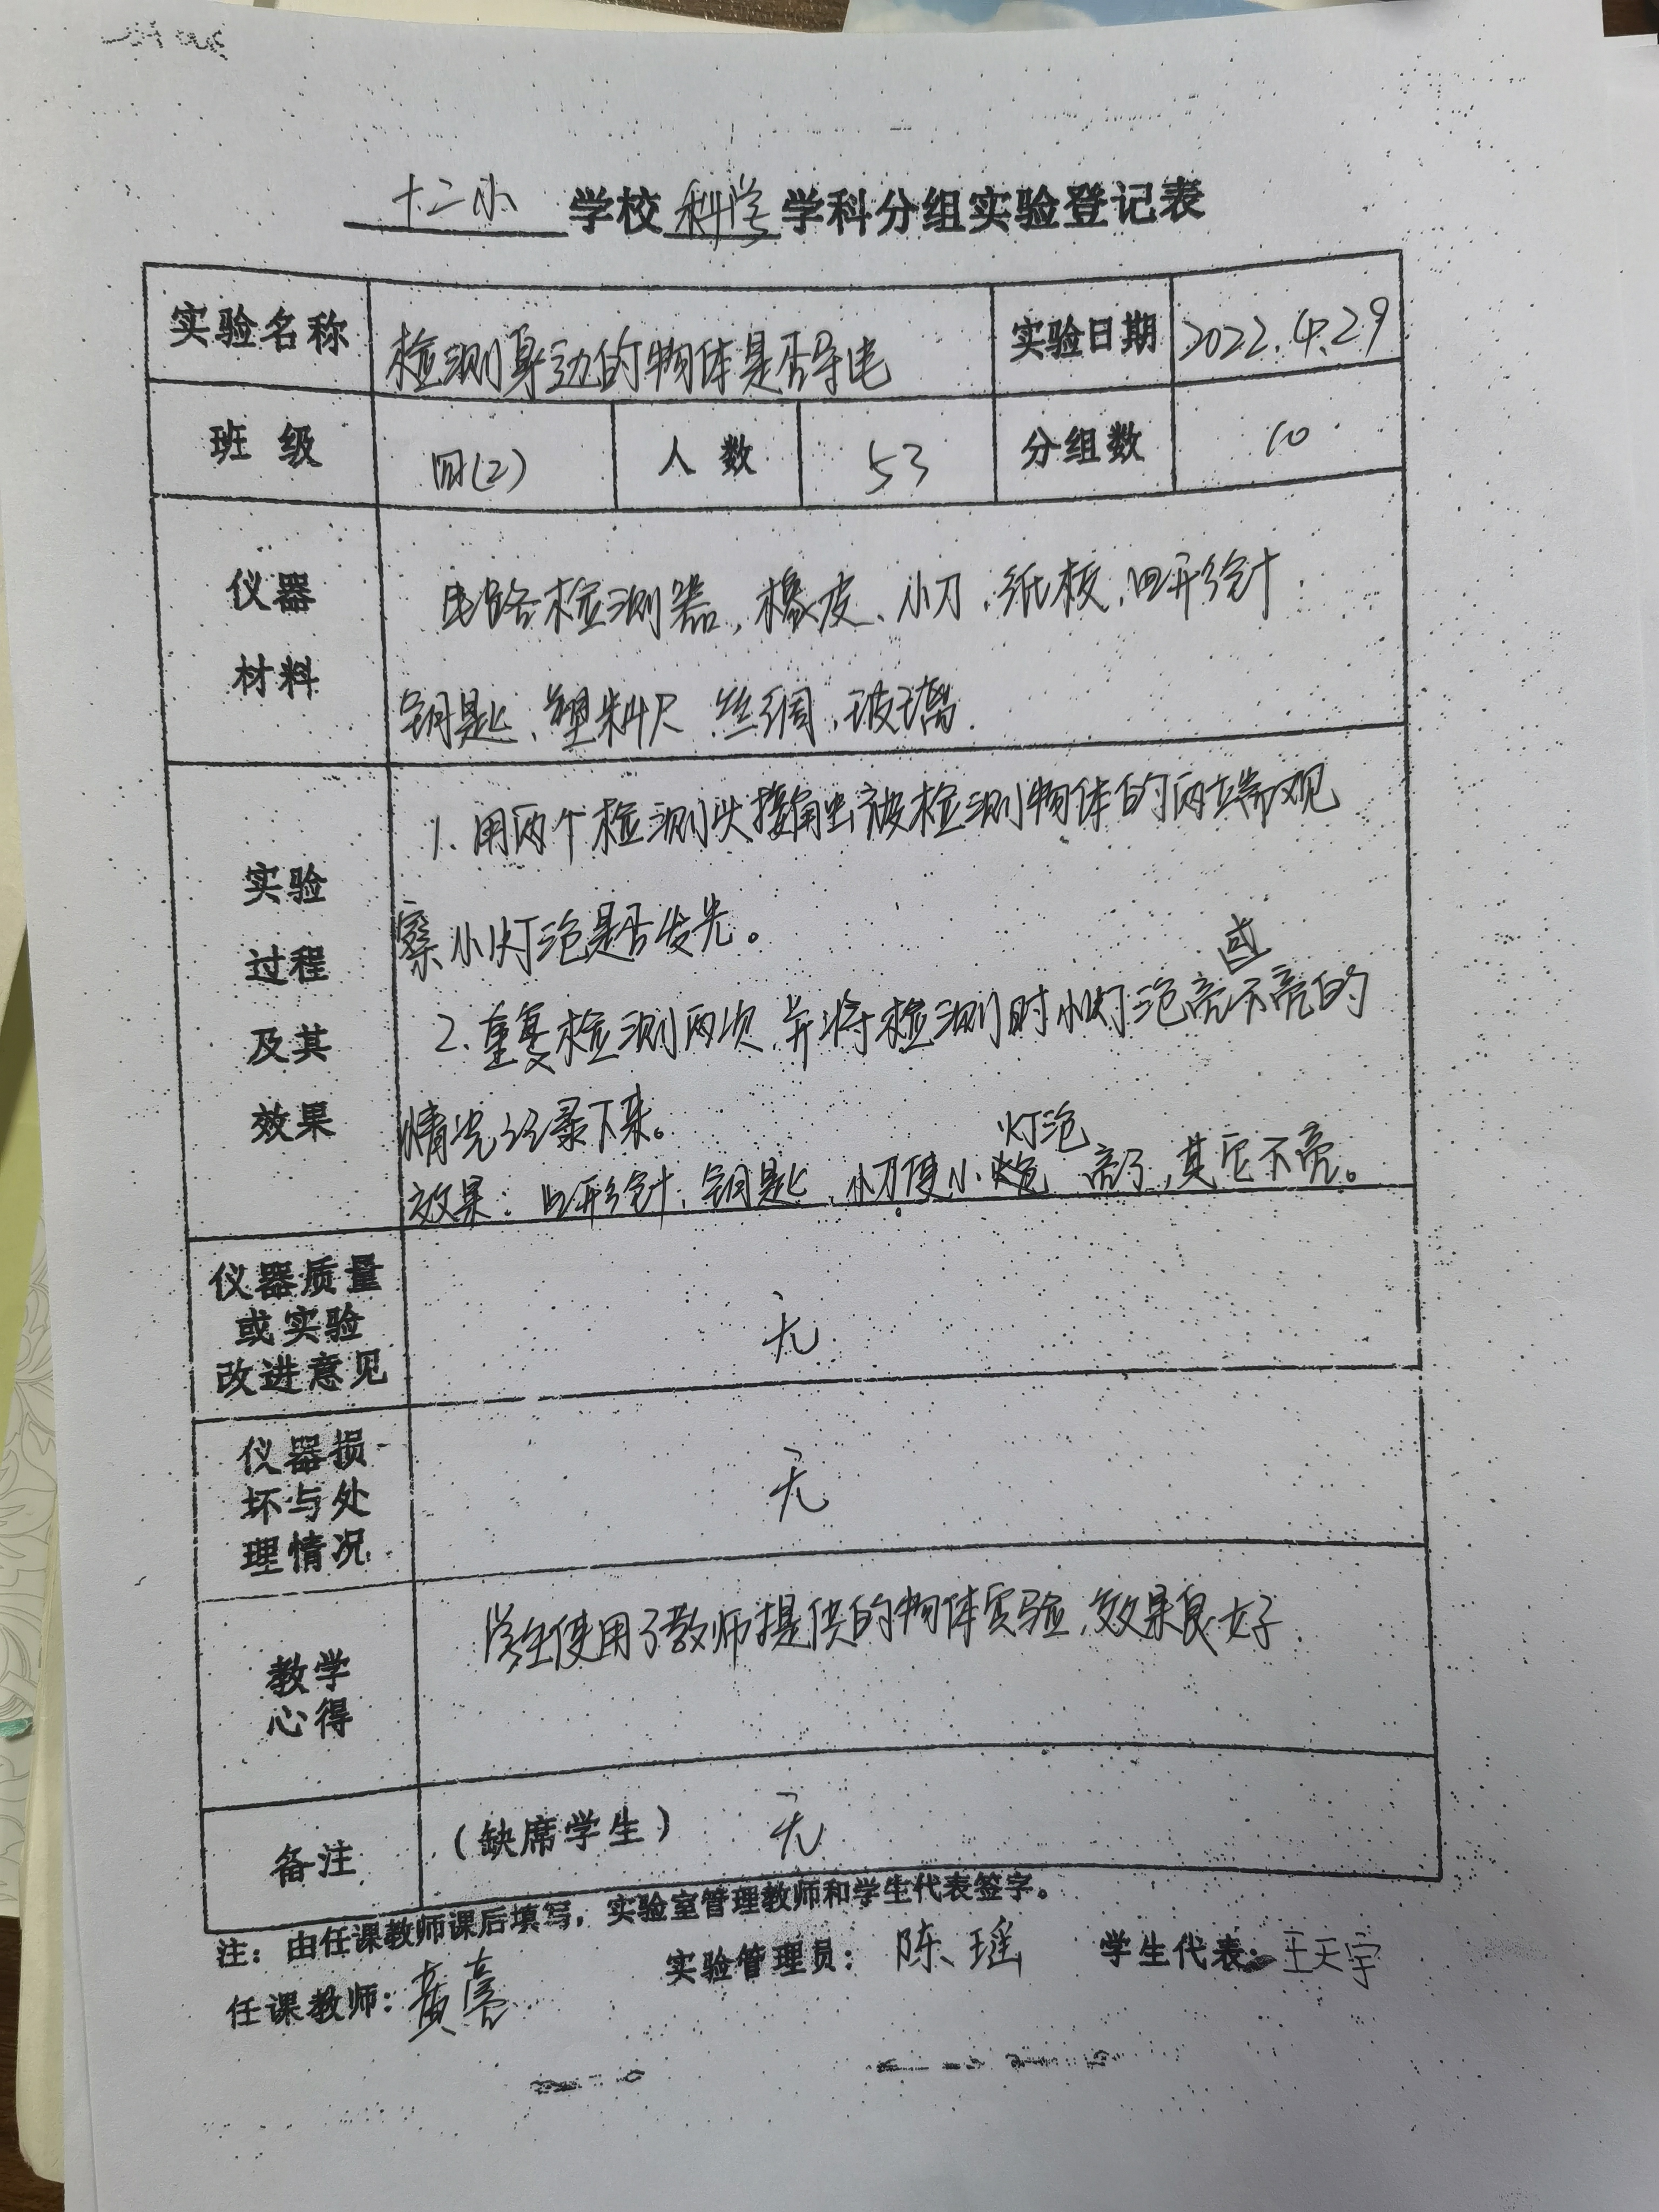 十二小 学校 科学 学科分组实验登记表
实验名称 检测身边的物体是否导电 实验日期 2022.4.29
班 级 四(2) 人 数 53 分组数 10
仪器
材料
电路检测器,橡皮、小刀、纸板,回形针
钥匙、塑料尺 丝绸,玻璃.
实验
过程
及其
效果
1. 用两个检测头接触被检测物体的两端观
察小灯泡是否发光。
2. 重复检测两次,并将检测时小灯泡亮或不亮的
情况记录下来。
效果:回形针,钥匙,小刀使小灯泡亮了,其它不亮。
仪器质量
或实验
改进意见
无
仪器损
坏与处
理情况
无
教学
心得
学生使用了教师提供的物体实验,效果良好.
备注 (缺席学生) 无
注:由任课教师课后填写,实验室管理教师和学生代表签字。
任课教师:黄亮 实验管理员:陈瑶 学生代表:王天宇